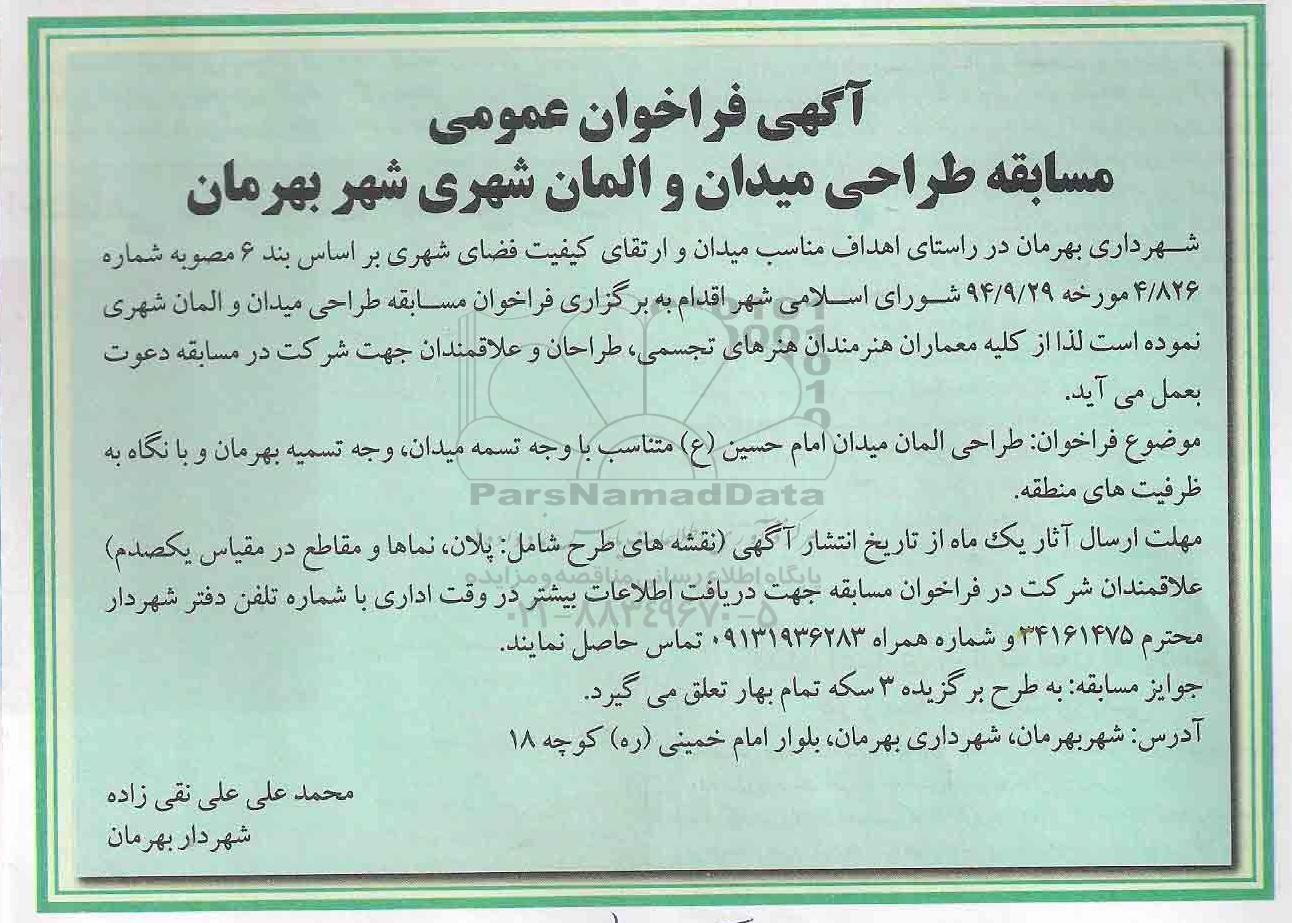 آگهی فراخوان عمومی
مسابقه طراحی میدان و المان شهری شهر بهرمان
شهرداری بهرمان در راستای اهداف مناسب میدان و ارتقای کیفیت فضای شهری بر اساس بند ۶ مصوبه شماره
۴/۸۲۶ مورخه ۹۴/۹/۲۹ شورای اسلامی شهر اقدام به برگزاری فراخوان مسابقه طراحی میدان و المان شهری
نموده است لذا از کلیه معماران هنرمندان هنرهای تجسمی، طراحان و علاقمندان جهت شرکت در مسابقه دعوت
بعمل می آید.
موضوع فراخوان: طراحی المان میدان امام حسین (ع) متناسب با وجه تسمه میدان، وجه تسمیه بهرمان و با نگاه به
ظرفیت های منطقه.
ParsNamadData
مهلت ارسال آثار یک ماه از تاریخ انتشار آگهی (نقشه های طرح شامل: پلان، نماها و مقاطع در مقیاس یکصدم)
پایگاه اطلاع رسانی مناقصه و مزایده
علاقمندان شرکت در فراخوان مسابقه جهت دریافت اطلاعات بیشتر در وقت اداری با شماره تلفن دفتر شهردار
۰۲۱-۸۸۳۴۹۶۷۰-۵
محترم ۳۴۱۶۱۴۷۵ و شماره همراه ۰۹۱۳۱۹۳۶۲۸۳ تماس حاصل نمایند.
جوایز مسابقه: به طرح برگزیده ۳ سکه تمام بهار تعلق می گیرد.
آدرس: شهربهرمان، شهرداری بهرمان، بلوار امام خمینی (ره) کوچه ۱۸
محمد علی علی نقی زاده
شهردار بهرمان